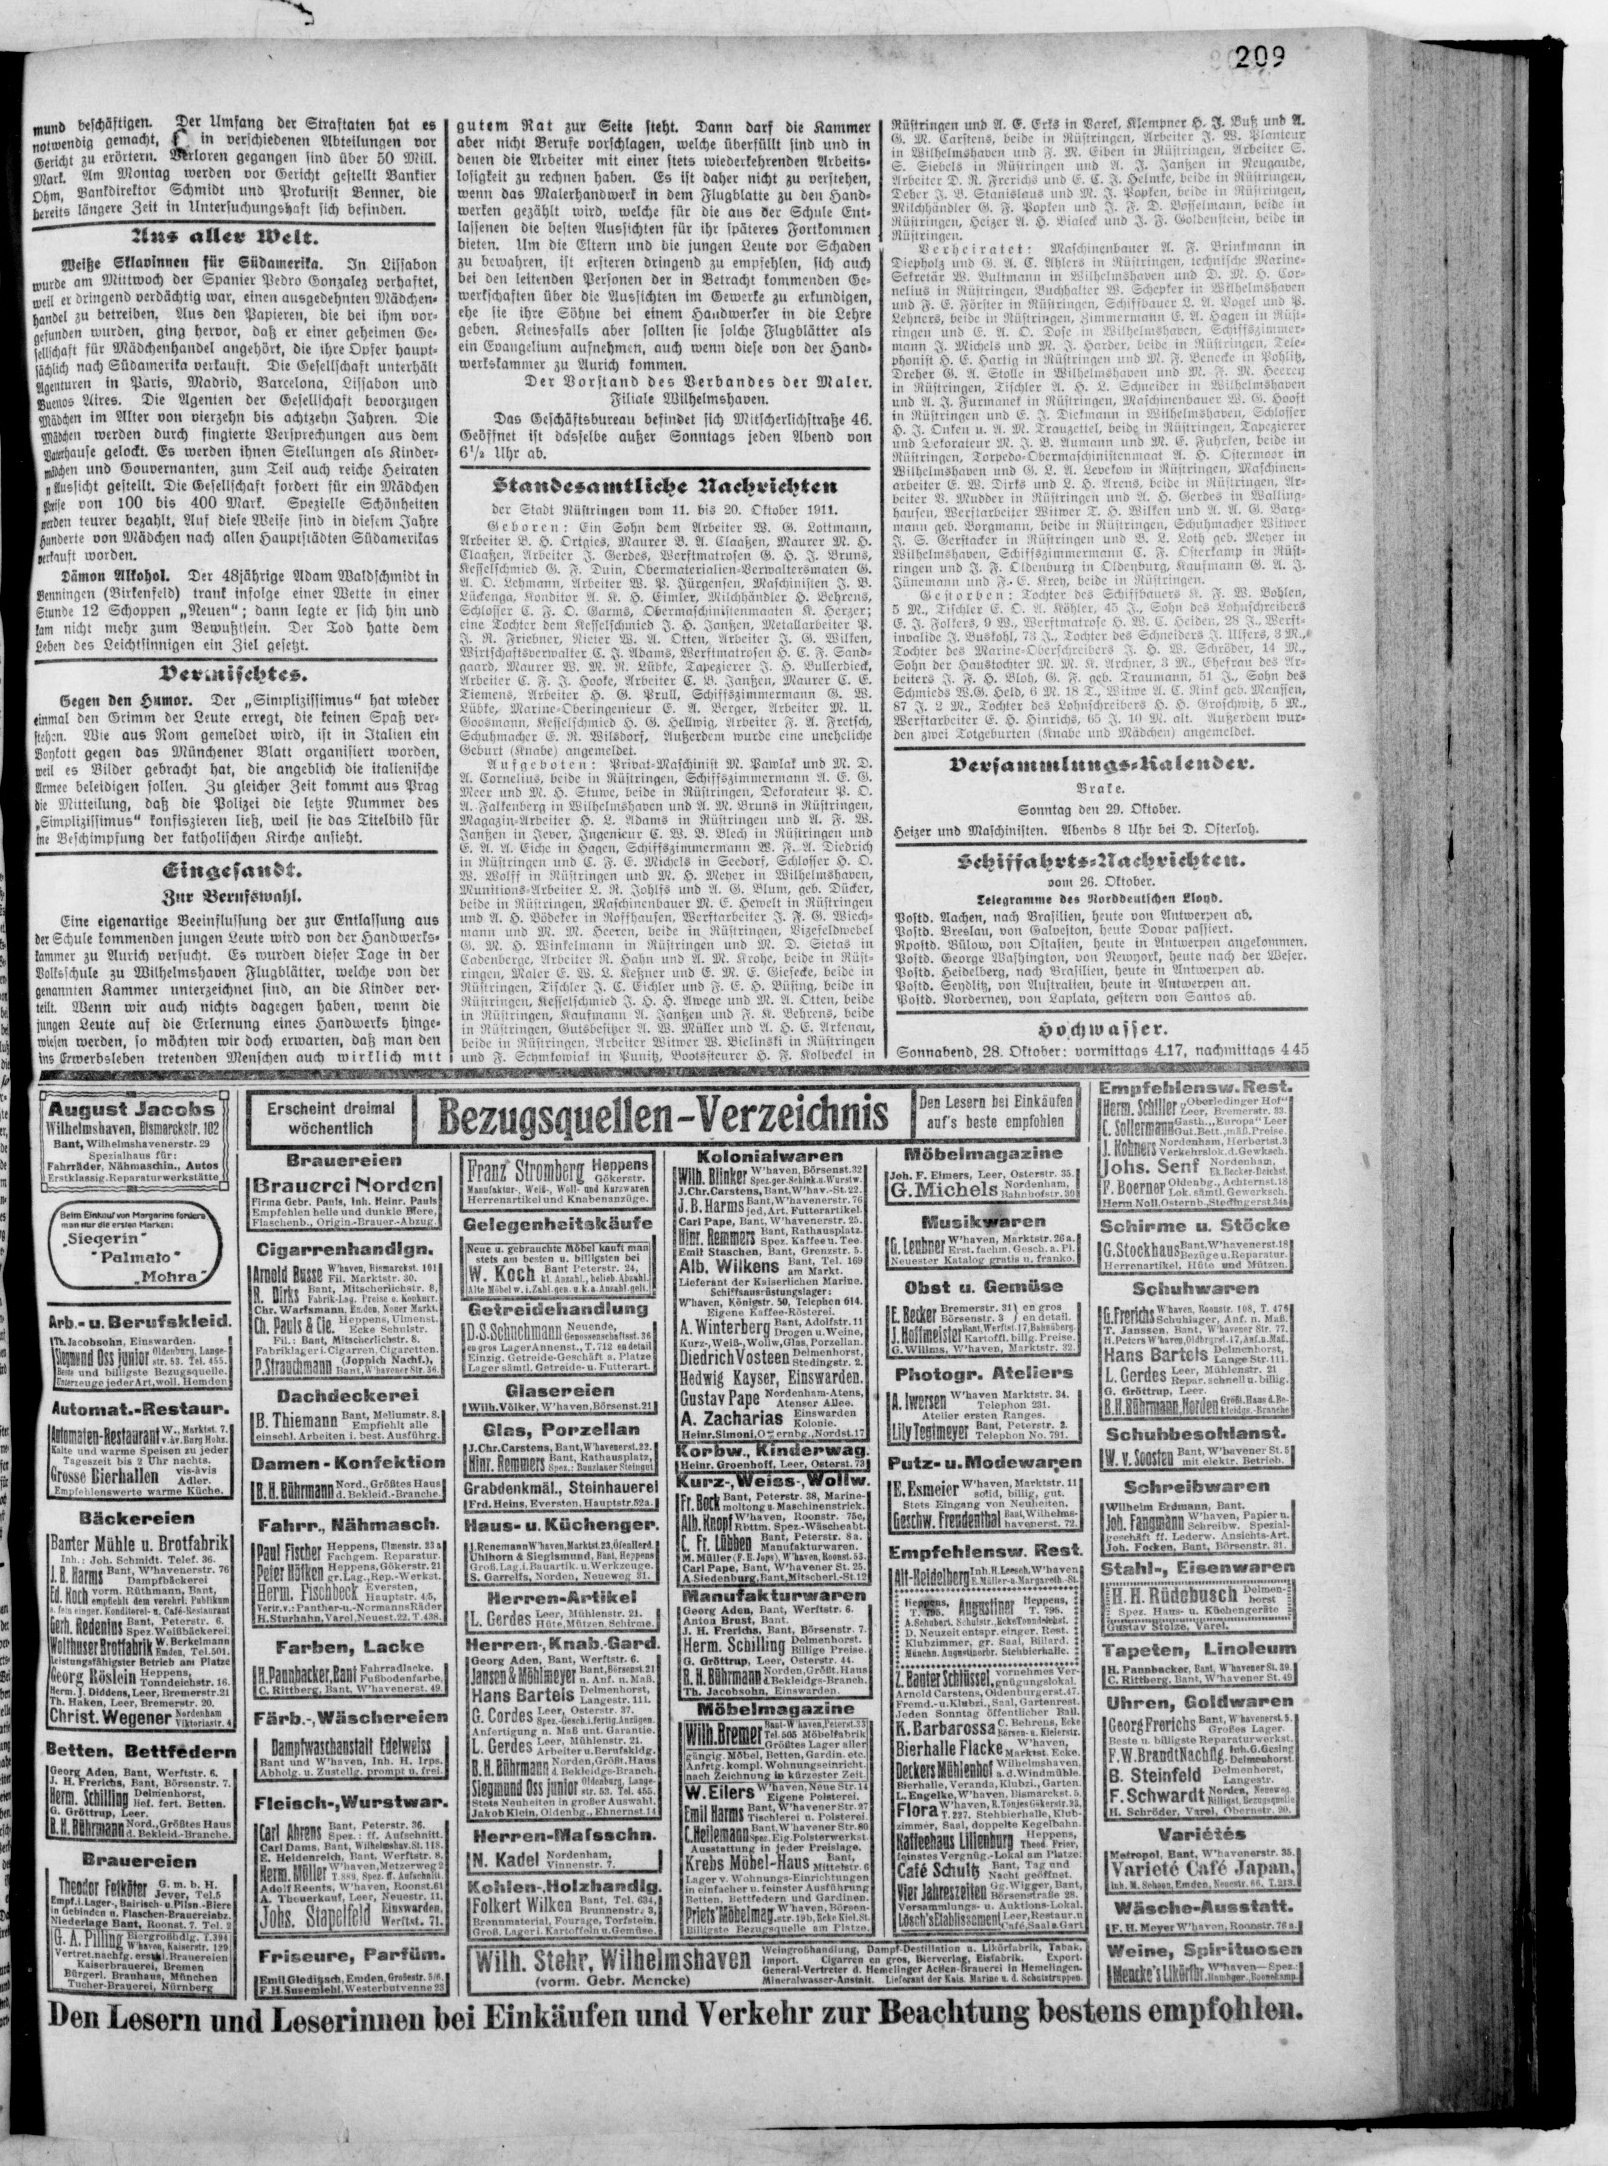 209
mund beschäftigen. Der Umfang der Straftaten hat es
notwendig gemacht, in verschiedenen Abteilungen vor
Gericht zu erörtern. Verloren gegangen sind über 50 Mill.
Mark. Am Montag werden vor Gericht gestellt Bankier
Ohm, Bankdirektor Schmidt und Prokurist Benner, die
bereits längere Zeit in Untersuchungshaft sich befinden.
Aus aller Welt.
Weiße Sklavinnen für Südamerika. In Lissabon
wurde am Mittwoch der Spanier Pedro Gonzalez verhaftet,
weil er dringend verdächtig war, einen ausgedehnten Mädchen-
handel zu betreiben. Aus den Papieren, die bei ihm vor-
gefunden wurden, ging hervor, daß er einer geheimen Ge-
sellschaft für Mädchenhandel angehört, die ihre Opfer haupt-
sächlich nach Südamerika verkauft. Die Gesellschaft unterhält
Agenturen in Paris, Madrid, Barcelona, Lissabon und
Buenos Aires. Die Agenten der Gesellschaft bevorzugen
Mädchen im Alter von vierzehn bis achtzehn Jahren. Die
Mädchen werden durch fingierte Versprechungen aus dem
Vaterhause gelockt. Es werden ihnen Stellungen als Kinder-
mädchen und Gouvernanten, zum Teil auch reiche Heiraten
n Aussicht gestellt. Die Gesellschaft fordert für ein Mädchen
Preise von 100 bis 400 Mark. Spezielle Schönheiten
werden teurer bezahlt. Auf diese Weise sind in diesem Jahre
Hunderte von Mädchen nach allen Hauptstädten Südamerikas
verkauft worden.
Dämon Alkohol. Der 48jährige Adam Waldschmidt in
Benningen (Birkenfeld) trank infolge einer Wette in einer
Stunde 12 Schoppen „Neuen“; dann legte er sich hin und
kam nicht mehr zum Bewußtsein. Der Tod hatte dem
Leben des Leichtsinnigen ein Ziel gesetzt.
Vermischtes.
Gegen den Humor. Der „Simplizissimus“ hat wieder
einmal den Grimm der Leute erregt, die keinen Spaß ver-
stehen. Wie aus Rom gemeldet wird, ist in Italien ein
Boykott gegen das Münchener Blatt organisiert worden,
weil es Bilder gebracht hat, die angeblich die italienische
Armee beleidigen sollen. Zu gleicher Zeit kommt aus Prag
die Mitteilung, daß die Polizei die letzte Nummer des
„Simplizissimus“ konfiszieren ließ, weil sie das Titelbild für
ine Beschimpfung der katholischen Kirche ansieht.
Eingesandt.
Zur Berufswahl.
Eine eigenartige Beeinflussung der zur Entlassung aus
der Schule kommenden jungen Leute wird von der Handwerks-
kammer zu Aurich versucht. Es wurden dieser Tage in der
Volksschule zu Wilhelmshaven Flugblätter, welche von der
genannten Kammer unterzeichnet sind, an die Kinder ver-
teilt. Wenn wir auch nichts dagegen haben, wenn die
jungen Leute auf die Erlernung eines Handwerks hinge-
wiesen werden, so möchten wir doch erwarten, daß man den
ins Erwerbsleben tretenden Menschen auch wirklich mit
gutem Rat zur Seite steht. Dann darf die Kammer
aber nicht Berufe vorschlagen, welche überfüllt sind und in
denen die Arbeiter mit einer stets wiederkehrenden Arbeits-
losigkeit zu rechnen haben. Es ist daher nicht zu verstehen,
wenn das Malerhandwerk in dem Flugblatte zu den Hand-
werken gezählt wird, welche für die aus der Schule Ent-
lassenen die besten Aussichten für ihr späteres Fortkommen
bieten. Um die Eltern und die jungen Leute vor Schaden
zu bewahren, ist ersteren dringend zu empfehlen, sich auch
bei den leitenden Personen der in Betracht kommenden Ge-
werkschaften über die Aussichten im Gewerke zu erkundigen,
ehe sie ihre Söhne bei einem Handwerker in die Lehre
geben. Keinesfalls aber sollten sie solche Flugblätter als
ein Evangelium aufnehmen, auch wenn diese von der Hand-
werkskammer zu Aurich kommen.
Der Vorstand des Verbandes der Maler.
Filiale Wilhelmshaven.
Das Geschäftsbureau befindet sich Mitscherlichstraße 46.
Geöffnet ist dasselbe außer Sonntags jeden Abend von
6½ Uhr ab.
Standesamtliche Nachrichten
der Stadt Rüstringen vom 11. bis 20. Oktober 1911.
Geboren: Ein Sohn dem Arbeiter W. G. Lottmann,
Arbeiter B. H. Ortgies, Maurer B. A. Claaßen, Maurer M. H.
Claaßen, Arbeiter J. Gerdes, Werftmatrosen G. H. J. Bruns,
Kesselschmied G. F. Duin, Obermaterialien-Verwaltersmaten G.
A. O. Lehmann, Arbeiter W. P. Jürgensen, Maschinisten J. B.
Lückenga, Konditor A. K. H. Eimler, Milchhändler H. Behrens,
Schlosser C. F. O. Garms, Obermaschinistenmaaten K. Herzer;
eine Tochter dem Kesselschmied J. H. Janßen, Metallarbeiter P.
J. R. Friebner, Nieter W. A. Otten, Arbeiter J. G. Wilken,
Wirtschaftsverwalter C. J. Adams, Werftmatrosen H. C. F. Sand-
gaard, Maurer W. M. R. Lübke, Tapezierer J. H. Bullerdieck,
Arbeiter C. F. J. Hooke, Arbeiter C. B. Janßen, Maurer C. E.
Tiemens, Arbeiter H. G. Prull, Schiffszimmermann G. W.
Lübke, Marine-Oberingenieur E. A. Berger, Arbeiter M. U.
Goosmann, Kesselschmied H. G. Hellwig, Arbeiter F. A. Fretsch,
Schuhmacher E. R. Wilsdorf. Außerdem wurde eine uneheliche
Geburt (Knabe) angemeldet.
Aufgeboten: Privat-Maschinist M. Pawlak und M. D.
A. Cornelius, beide in Rüstringen, Schiffszimmermann A. E. G.
Meer und M. H. Stuwe, beide in Rüstringen, Dekorateur P. O.
A. Falkenberg in Wilhelmshaven und A. M. Bruns in Rüstringen,
Magazin-Arbeiter H. L. Adams in Rüstringen und A. F. W.
Janßen in Jever, Ingenieur C. W. B. Blech in Rüstringen und
E. A. A. Eiche in Hagen, Schiffszimmermann W. F. A. Diedrich
in Rüstringen und C. F. E. Michels in Seedorf, Schlosser H. O.
W. Wolff in Rüstringen und M. H. Meyer in Wilhelmshaven,
Munitions-Arbeiter L. R. Johlfs und A. G. Blum, geb. Dücker,
beide in Rüstringen, Maschinenbauer M. E. Hewelt in Rüstringen
und A. H. Bödeker in Roffhausen, Werftarbeiter J. F. G. Wiech-
mann und M. M. Heeren, beide in Rüstringen, Vizefeldwebel
G. M. H. Winkelmann in Rüstringen und M. D. Sietas in
Cadenberge, Arbeiter R. Hahn und A. M. Krohe, beide in Rüst-
ringen, Maler E. W. L. Keßner und E. M. E. Giesecke, beide in
Rüstringen, Tischler J. C. Eichler und F. E. H. Büsing, beide in
Rüstringen, Kesselschmied J. H. H. Awege und M. A. Otten, beide
in Rüstringen, Kaufmann A. Janßen und F. K. Behrens, beide
in Rüstringen, Gutsbesitzer A. W. Müller und A. H. E. Arkenau,
beide in Rüstringen, Arbeiter Witwer W. Bielinski in Rüstringen
und F. Schmkowiak in Punitz, Bootssteurer H. F. Kolbeckel in
Rüstringen und A. E. Erks in Varel, Klempner H. J. Buß und A.
G. M. Carstens, beide in Rüstringen, Arbeiter J. W. Planteur
in Wilhelmshaven und F. M. Eiben in Rüstringen, Arbeiter S.
S. Siebels in Rüstringen und A. J. Janßen in Neugaude,
Arbeiter D. R. Frerichs und E. C. J. Helmke, beide in Rüstringen,
Dreher J. B. Stanislaus und M. J. Popken, beide in Rüstringen,
Milchhändler G. F. Popken und J. F. D. Bosselmann, beide in
Rüstringen, Heizer A. H. Bialeck und J. F. Goldenstein, beide in
Rüstringen.
Verheiratet: Maschinenbauer A. F. Brinkmann in
Diepholz und G. A. C. Ahlers in Rüstringen, technische Marine-
Sekretär W. Bultmann in Wilhelmshaven und D. M. H. Cor-
nelius in Rüstringen, Buchhalter W. Schepker in Wilhelmshaven
und F. E. Förster in Rüstringen, Schiffbauer L. A. Vogel und P.
Lehners, beide in Rüstringen, Zimmermann E. A. Hagen in Rüst-
ringen und E. A. O. Dose in Wilhelmshaven, Schiffszimmer-
mann J. Michels und M. J. Harder, beide in Rüstringen, Tele-
phonist H. E. Hartig in Rüstringen und M. F. Benecke in Pohlitz,
Dreher G. A. Stolle in Wilhelmshaven und M. F. M. Heeren
in Rüstringen, Tischler A. H. L. Schneider in Wilhelmshaven
und A. J. Furmanek in Rüstringen, Maschinenbauer W. G. Hooft
in Rüstringen und E. J. Diekmann in Wilhelmshaven, Schlosser
H. J. Onken u. A. M. Trauzettel, beide in Rüstringen, Tapezierer
und Dekorateur M. J. B. Aumann und M. E. Fuhrken, beide in
Rüstringen, Torpedo-Obermaschinistenmaat A. H. Ostermoor in
Wilhelmshaven und G. L. A. Levekow in Rüstringen, Maschinen-
arbeiter E. W. Dirks und L. H. Arens, beide in Rüstringen, Ar-
beiter B. Mudder in Rüstringen und A. H. Gerdes in Walling-
hausen, Werftarbeiter Witwer T. H. Wilken und A. A. G. Barg-
mann geb. Borgmann, beide in Rüstringen, Schuhmacher Witwer
J. S. Gerstacker in Rüstringen und B. L. Loth geb. Meyer in
Wilhelmshaven, Schiffszimmermann C. F. Osterkamp in Rüst-
ringen und J. F. Oldenburg in Oldenburg, Kaufmann G. A. J.
Jünemann und F. E. Krey, beide in Rüstringen.
Gestorben: Tochter des Schiffbauers K. F. W. Bohlen,
5 M., Tischler E. O. A. Köhler, 45 J., Sohn des Lohnschreibers
E. J. Folkers, 9 W., Werftmatrose H. W. C. Heiden, 28 J., Werft-
invalide J. Buskohl, 73 J., Tochter des Schneiders J. Ulfers, 3 M.,
Tochter des Marine-Oberschreibers J. H. W. Schröder, 14 M.,
Sohn der Haustochter M. M. K. Archner, 3 M., Ehefrau des Ar-
beiters J. F. H. Bloh, G. F. geb. Traumann, 51 J., Sohn des
Schmieds W.G. Held, 6 M. 18 T., Witwe A. C. Rink geb. Manssen,
87 J. 2 M., Tochter des Lohnschreibers H. H. Groschwitz, 5 M.,
Werftarbeiter E. H. Hinrichs, 65 J. 10 M. alt. Außerdem wur-
den zwei Totgeburten (Knabe und Mädchen) angemeldet.
Versammlungs-Kalender.
Brake.
Sonntag den 29. Oktober.
Heizer und Maschinisten. Abends 8 Uhr bei D. Osterloh.
Schiffahrts-Nachrichten.
vom 26. Oktober.
Telegramme des Norddeutschen Lloyd.
Postd. Aachen, nach Brasilien, heute von Antwerpen ab.
Postd. Breslau, von Galveston, heute Dovar passiert.
Rpostd. Bülow, von Ostasien, heute in Antwerpen angekommen.
Postd. George Washington, von Newyork, heute nach der Weser.
Postd. Heidelberg, nach Brasilien, heute in Antwerpen ab.
Postd. Seydlitz, von Australien, heute in Antwerpen an.
Postd. Norderney, von Laplata, gestern von Santos ab.
Hochwasser.
Sonnabend, 28. Oktober: vormittags 4.17, nachmittags 4 45
August Jacobs
Wilhelmshaven, Bismarckstr. 102
Bant, Wilhelmshavenerstr. 29
Spezialhaus für:
Fahrräder, Nähmaschin., Autos
Erstklassig. Reparaturwerkstätte
Beim Einkauf von Margarine fordere
man nur die ersten Marken:
„Siegerin“
“Palmato“
„Mohra“
Erscheint dreimal
wöchentlich
Bezugsquellen-Verzeichnis
Den Lesern bei Einkäufen
auf's beste empfohlen
Arb.- u. Berufskleid.
Th. Jacobsohn, Einswarden.
Siegmund Oss junior Oldenburg, Lange-
str. 53. Tel. 455.
Beste und billigste Bezugsquelle.
Unterzeuge jeder Art, woll. Hemden
Automat.-Restaur.
Automaten-Restaurant W., Marktst. 7.
Kalte und warme Speisen zu jeder
Tageszeit bis 2 Uhr nachts.
Grosse Bierhallen vis-àvis
Adler.
Empfehlenswerte warme Küche.
Bäckereien
Banter Mühle u. Brotfabrik
Inh.: Joh. Schmidt. Telef. 36.
J. B. Harms Bant, W'havenerstr. 76
Dampfbäckerei
Ed. Koch vorm. Rüthmann, Bant,
empfiehlt dem verehrl. Publikum
Gerh. Redenius Bant, Peterstr. 6.
Spez. Weißbäckerei.
Wolthuser Brotfabrik W. Berkelmann
Emden, Tel. 501.
Leistungsfähigster Betrieb am Platze
Georg Röslein Heppens,
Tonndeichstr. 16.
Herm. J. Diddens, Leer, Bremerstr. 21
Th. Haken, Leer, Bremerstr. 20.
Christ. Wegener Nordenham
Viktoriastr. 4
Betten, Bettfedern
Georg Aden, Bant, Werftstr. 6.
J. H. Frerichs, Bant, Börsenstr. 7.
Herm. Schilling Delmenhorst,
Hef. fert. Betten.
G. Gröttrup, Leer.
B. H. Bührmann Nord., Größtes Haus
d. Bekleid.-Branche.
Brauereien
Theodor Fetköter G. m. b. H.
Jever, Tel.5
Empf. i. Lager-, Bairisch- u. Pilsn.-Biere
in Gebinden u. Flaschen-Brauereiabz.
Niederlage Bant, Roonst. 7. Tel. 2
G. A. Pilling Biergroßhdlg. T. 394
W'haven, Kaiserstr. 129
Vertret. nachfg. erstkl. Brauereien
Kaiserbrauerei, Bremen
Bürgerl. Brauhaus, München
Tucher-Brauerei, Nürnberg
Brauereien
Brauerei Norden
Firma Gebr. Pauls, Inh. Heinr. Pauls
Empfehlen helle und dunkle Biere,
Flaschenb., Origin.-Brauer-Abzug.
Cigarrenhandlgn.
Arnold Busse W'haven, Bismarckst. 101
Fil. Marktstr. 30.
R. Dirks Bant, Mitscherlichstr. 8,
Fabrik-Lag. Preise o. Konkurr.
Chr. Warfsmann, Emden, Neuer Markt.
Ch. Pauls & Cie. Heppens, Ulmenst.
Ecke Schulstr.
Fil.: Bant, Mitscherlichstr. 8.
Fabriklager i. Cigarren, Cigaretten.
P. Strauchmann (Joppich Nachf.),
Bant, W'havener Str. 36.
Dachdeckerei
B. Thiemann Bant, Mellumstr. 8.
Empfiehlt alle
einschl. Arbeiten i. best. Ausführg.
Damen-Konfektion
B. H. Bührmann Nord., Größtes Haus
d. Bekleid.-Branche.
Fahrr., Nähmasch.
Paul Fischer Heppens, Ulmenstr. 23 a
Fachgem. Reparatur.
Peter Höfken Heppens, Gökerstr. 21
gr. Lag., Rep.-Werkst.
Herm. Fischbeck Eversten,
Hauptstr. 4/5,
Vertr. v.: Panther- u.-Normanns Räder
H. Sturhahn, Varel, Neuest. 22. T. 438.
Farben, Lacke
H. Pannbacker, Bant Fahrradlacke.
Fußbodenfarbe.
C. Rittberg, Bant, W'havenerst. 49.
Färb.-, Wäschereien
Dampfwaschanstalt Edelweiss
Bant und W'haven, Inh. H. Irps.
Abholg. u. Zustellg. prompt u. frei.
Fleisch-, Wurstwar.
Carl Ahrens Bant, Peterstr. 36.
Spez.: ff. Aufschnitt.
Carl Dams, Bant, Wilhelmshav. St. 118.
E. Heidenreich, Bant, Werftstr. 8.
Herm. Möller W'haven, Metzerweg 2
T. 889, Spez. ff. Aufschnitt.
Adolf Reents, W'haven, Roonst. 61
A. Theuerkauf, Leer, Neuestr. 11.
Johs. Stapelfeld Einswarden,
Werftst. 71.
Friseure, Parfüm.
Emil Gleditzsch, Emden, Großestr. 5/6.
F. H. Susemiehl, Westerbutvenne 23
Franz Stromberg Heppens
Gökerstr.
Manufaktur-, Weiß-, Woll- und Kurzwaren
Herrenartikel und Knabenanzüge.
Gelegenheitskäufe
Neue u. gebrauchte Möbel kauft man
stets am besten u. billigsten bei
W. Koch Bant Peterstr. 24,
kl. Anzahl., belieb. Abzahl.
Alte Möbel w. i. Zahl. gen. u. k. a. Anzahl. geli.
Getreidehandlung
D. S. Schuchmann Neuende,
Genossenschaftsst. 36
en gros Lager Annenst., T. 712 en detail
Einzig. Getreide-Geschäft a. Platze
Lager sämtl. Getreide- u. Futterart.
Glasereien
Wilh. Völker, W'haven, Börsenst. 21
Glas, Porzellan
J. Chr. Carstens, Bant, W'havenerst. 22.
Hinr. Remmers Bant, Rathausplatz,
Spez.: Bunzlauer Steingut
Grabdenkmäl., Steinhauerei
Frd. Heins, Eversten, Hauptstr. 52a.
Haus- u. Küchenger.
J. Renemann W'haven, Marktst. 23, Öfen Herd.
Uhlhorn & Sieglsmund, Bant, Heppens
Groß. Lag. i. Bauartik. u. Werkzeuge.
S. Garrelfs, Norden, Neueweg 31.
Herren-Artikel
L. Gerdes Leer, Mühlenstr. 21.
Hüte, Mützen, Schirme.
Herren-, Knab.-Gard.
Georg Aden, Bant, Werftstr. 6.
Jansen & Möhlmeyer Bant, Börsenst. 21
n. Anf. n. Maß.
Hans Bartels Delmenhorst,
Langestr. 111.
G. Cordes Leer, Osterstr. 37.
Spez.-Gesch. i. fertig. Anzügen.
Anfertigung n. Maß unt. Garantie.
L. Gerdes Leer, Mühlenstr. 21.
Arbeiter u. Berufskldg.
B. H. Bührmann Norden, Größt. Haus
d. Bekleidgs-Branch.
Siegmund Oss junior Oldenburg, Lange-
str. 53. Tel. 455.
Stets Neuheiten in großer Auswahl.
Jakob Klein, Oldenbg., Ehnernst. 14
Herren-Mafsschn.
N. Kadel Nordenham,
Vinnenstr. 7.
Kohlen-, Holzhandlg.
Folkert Wilken Bant, Tel. 634,
Brunnenstr. 3,
Brennmaterial, Fourage, Torfstein.
Groß. Lager i. Kartoffeln u. Gemüse.
Kolonialwaren
Wilh. Blinker W'haven, Börsenst. 32
Spez. ger. Schink. u. Wurstw.
J. Chr. Carstens, Bant, W'hav.-St. 22.
J. B. Harms Bant, W'havenerstr. 76
jed. Art. Futterartikel.
Carl Pape, Bant, W'havenerstr. 25.
Hinr. Remmers Bant, Rathausplatz.
Spez. Kaffee u. Tee.
Emil Staschen, Bant, Grenzstr. 5.
Alb. Wilkens Bant, Tel. 169
am Markt.
Lieferant der Kaiserlichen Marine.
Schiffsausrüstungslager:
W'haven, Königstr. 50, Telephon 614.
Eigene Kaffee-Rösterei.
A. Winterberg Bant, Adolfstr. 11
Drogen u. Weine,
Kurz-, Weiß-, Wollw., Glas, Porzellan.
Diedrich Vosteen Delmenhorst,
Stedingstr. 2.
Hedwig Kayser, Einswarden.
Gustav Pape Nordenham-Atens,
Atenser Allee.
A. Zacharias Einswarden
Kolonie.
Heinr. Simoni, Osternbg., Nordst. 17
Korbw., Kinderwag.
Heinr. Groenhoff, Leer, Osterst. 73
Kurz-, Weiss-, Wollw.
Fr. Bock Bant, Peterstr. 38, Marine-
moltong u. Maschinenstrick.
Alb. Knopf W'haven, Roonstr. 75c,
Rbttm. Spez.-Wäscheabt.
C. Fr. Lübben Bant, Peterstr. 8a.
Manufakturwaren.
M. Müller (F. E. Jops), W'haven, Roonst. 53.
Carl Pape, Bant, W'havener St. 25.
A. Siedenburg, Bant, Mitscherl.-St. 12
Manufakturwaren
Georg Aden, Bant, Werftstr. 6.
Anton Brust, Bant.
J. H. Frerichs, Bant, Börsenstr. 7.
Herm. Schilling Delmenhorst.
Billige Preise.
G. Gröttrup, Leer, Osterstr. 44.
B. H. Bührmann Norden, Größt. Haus
d. Bekleidgs-Branch.
Th. Jacobsohn, Einswarden.
Möbelmagazine
Wilh. Bremer Bant-W'haven, Peterst. 33
Tel. 505 Möbelfabrik
Größtes Lager aller
gängig. Möbel, Betten, Gardin. etc.
Anfrtg. kompl. Wohnungseinricht.
nach Zeichnung in kürzester Zeit.
W. Eilers W'haven, Neue Str. 14
Eigene Polsterei.
Emil Harms Bant, W'havener Str. 27
Tischlerei u. Polsterei.
C. Heilemann Bant, W'havener Str. 80
Spez. Eig. Polsterwerkst.
Ausstattung in jeder Preislage.
Krebs Möbel-Haus Bant,
Mittelstr. 6
Lager v. Wohnungs-Einrichtungen
in einfacher u. feinster Ausführung
Betten, Bettfedern und Gardinen.
Priets' Möbelmag. W'haven, Börsen-
str. 19b, Ecke Kiel. St.
Billigste Bezugsquelle am Platze.
Möbelmagazine
Joh. F. Elmers, Leer, Osterstr. 35.
G. Michels Nordenham,
Bahnhofstr. 30
Musikwaren
G. Leubner W'haven, Marktstr. 26a.
Erst. fachm. Gesch. a. Pl.
Neuester Katalog gratis u. franko.
Obst u. Gemüse
E. Becker Bremerstr. 31 en gros
Börsenstr. 3 en detail.
J. Hoffmeister Bant, Werftst. 17, Bahnüberg.
Kartoffl. billg. Preise.
G. Willms, W'haven, Marktstr. 32.
Photogr. Ateliers
A. Iwersen W'haven Marktstr. 34.
Telephon 231.
Atelier ersten Ranges.
Lily Tegtmeyer Bant, Peterstr. 2.
Telephon No. 791.
Putz- u. Modewaren
E. Esmeier W'haven, Marktstr. 11
solid, billig, gut.
Stets Eingang von Neuheiten.
Geschw. Freudenthal Bant, Wilhelms-
havenerst. 72.
Empfehlensw. Rest.
Alt-Heidelberg Inh. H. Leesch, W'haven
E. Müller- u. Margareth.-St.
Heppens,
T. 795. Augustiner Heppens,
T. 795.
A. Schubert, Schulstr., Ecke Tonndeichst.
D. Neuzeit entspr. einger. Rest.
Klubzimmer, gr. Saal, Billard.
Münchn. Augustinerbr. Stehbierhalle.
Z. Banter Schlüssel, vornehmes Ver-
gnügungslokal.
Arnold Carstens, Oldenburgerst. 47.
Fremd.- u. Klubzi., Saal, Gartenrest.
Jeden Sonntag öffentlicher Ball.
K. Barbarossa C. Behrens, Ecke
Börsen- u. Kielerstr.
Bierhalle Flacke W'haven,
Marktst. Ecke.
Deckers Mühlenhof Wilhelmshaven,
a. d. Windmühle.
Bierhalle, Veranda, Klubzi., Garten.
L. Engelke, W'haven, Bismarckst. 5.
Flora W'haven, R. Tönjes Gökerstr. 23,
T. 227. Stehbierhalle, Klub-
zimmer, Saal, doppelte Kegelbahn.
Kaffeehaus Lilienburg Heppens,
Theod. Frier,
feinstes Vergnüg.-Lokal am Platze.
Café Schultz Bant, Tag und
Nacht geöffnet.
Vier Jahreszeiten Gg. Wigger, Bant,
Börsenstraße 28.
Versammlungs- u. Auktions-Lokal.
Lösch's Etablissement Leer, Restaur. u
Café, Saal u. Gart
Empfehlensw. Rest.
Herm. Schiller „Oberledinger Hof“
Leer, Bremerstr. 33.
C. Soltermann Gasth. „Europa“ Leer
Gut. Bett., mäß. Preise.
J. Kohners Nordenham, Herbertst. 3
Verkehrslok. d. Gewksch.
Johs. Senf Nordenham,
Ek. Becker-Deichst.
F. Boerner Oldenbg., Achternst. 18
Lok. sämtl. Gewerksch.
Herm. Noll, Osternb., Stedingerst. 34a
Schirme u. Stöcke
G. Stockhaus Bant, W'havenerst. 18
Bezüge u. Reparatur.
Herrenartikel, Hüte und Mützen.
Schuhwaren
G. Frerichs W'haven, Roonstr. 108, T. 476
Schuhlager, Anf. n. Maß.
T. Janssen, Bant, W'havener Str. 77.
H. Peters W'haven, Oldbrgrst. 17, Anf. n. Maß.
Hans Bartels Delmenhorst,
Lange Str. 111.
L. Gerdes Leer, Mühlenstr. 21
Repar. schnell u. billig.
G. Gröttrup, Leer.
B. H. Bührmann, Norden Größt. Haus d. Be-
kleidgs.-Branche
Schuhbesohlanst.
W. v. Soosten Bant, W'havener St. 5
mit elektr. Betrieb.
Schreibwaren
Wilhelm Erdmann, Bant.
Joh. Fangmann W'haven, Papier u.
Schreibw. Spezial-
geschäft ff. Lederw. Ansichts-Art.
Joh. Focken, Bant, Börsenstr. 31.
Stahl-, Eisenwaren
H. H. Rüdebusch Delmen-
horst
Spez. Haus- u. Küchengeräte
Gustav Stolze, Varel.
Tapeten, Linoleum
H. Pannbacker, Bant, W'havener St. 39.
C. Rittberg, Bant, W'havener St. 49
Uhren, Goldwaren
Georg Frerichs Bant, W'havenerst. 5.
Großes Lager.
Beste u. billigste Reparaturwerkst.
F. W. Brandt Nachflg. Inh. G. Gesing
Delmenhorst.
B. Steinfeld Delmenhorst,
Langestr.
F. Schwardt Norden, Neueweg.
Billigst. Bezugsquelle
H. Schröder, Varel, Obernstr. 20.
Variétés
Metropol, Bant, W'havenerstr. 35.
Varieté Café Japan,
Inh. M. Schoon, Emden, Neuestr. 66, T. 213.
Wäsche-Ausstatt.
F. H. Meyer W'haven, Roonstr. 76 a.
Weine, Spirituosen
Mencke's Likörfbr. W'haven—Spez.:
Wilh. Stehr, Wilhelmshaven
(vorm. Gebr. Mencke)
Weingroßhandlung, Dampf-Destillation u. Likörfabrik, Tabak,
Import. Cigarren en gros, Bierverlag, Eisfabrik. Export.
General-Vertreter d. Hemelinger Actien-Brauerei in Hemelingen.
Mineralwasser-Anstalt. Lieferant der Kais. Marine u. d. Schutztruppen.
Den Lesern und Leserinnen bei Einkäufen und Verkehr zur Beachtung bestens empfohlen.